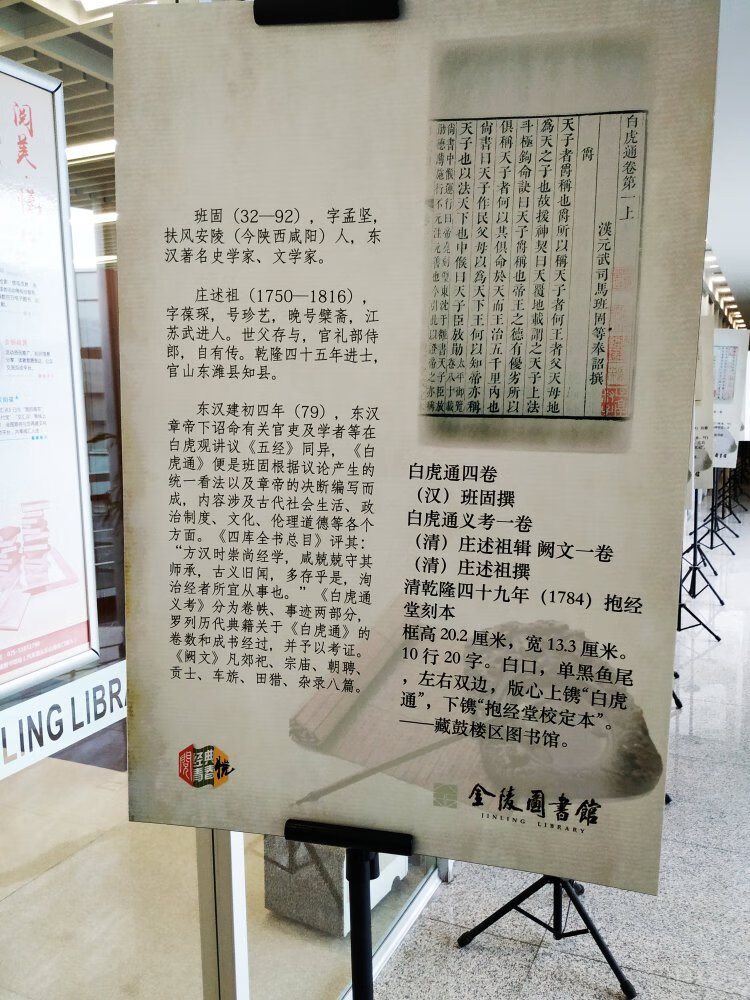 班固（32—92），字孟坚，
扶风安陵（今陕西咸阳）人，东
汉著名史学家、文学家。
庄述祖（1750—1816），
字葆琛，号珍艺，晚号檗斋，江
苏武进人。世父存与，官礼部侍
郎，自有传。乾隆四十五年进士，
官山东潍县知县。
东汉建初四年（79），东汉
章帝下诏命有关官吏及学者等在
白虎观讲议《五经》同异，《白
虎通》便是班固根据议论产生的
统一看法以及章帝的决断编写而
成，内容涉及古代社会生活、政
治制度、文化、伦理道德等各个
方面。《四库全书总目》评其：
“方汉时崇尚经学，咸兢兢守其
师承，古义旧闻，多存乎是，洵
治经者所宜从事也。”《白虎通
义考》分为卷帙、事迹两部分，
罗列历代典籍关于《白虎通》的
卷数和成书经过，并予以考证。
《阙文》凡郊祀、宗庙、朝聘、
贡士、车旂、田猎、杂录八篇。
白虎通卷第一上
漢元武司馬班固等奉詔撰
爵
天子者爵稱也爵所以稱天子者何王者父天母地
為天之子也故援神契曰天覆地載謂之天子上法
斗極鉤命訣曰天子爵稱也帝王之德有優劣所以
俱稱天子者何以其俱命於天而王治五千里內也
尙書曰天子作民父母以為天下王何以知帝亦稱
天子也以法天下也中候曰天子臣放勛
白虎通四卷
（汉）班固撰
白虎通义考一卷
（清）庄述祖辑 阙文一卷
（清）庄述祖撰
清乾隆四十九年（1784）抱经
堂刻本
框高 20.2 厘米，宽 13.3 厘米。
10 行 20 字。白口，单黑鱼尾
，左右双边，版心上镌“白虎
通”，下镌“抱经堂校定本”。
——藏鼓楼区图书馆。
閱 经典 青春 悦
金陵圖書館
JINLING LIBRARY
阅美
LING LIBRA